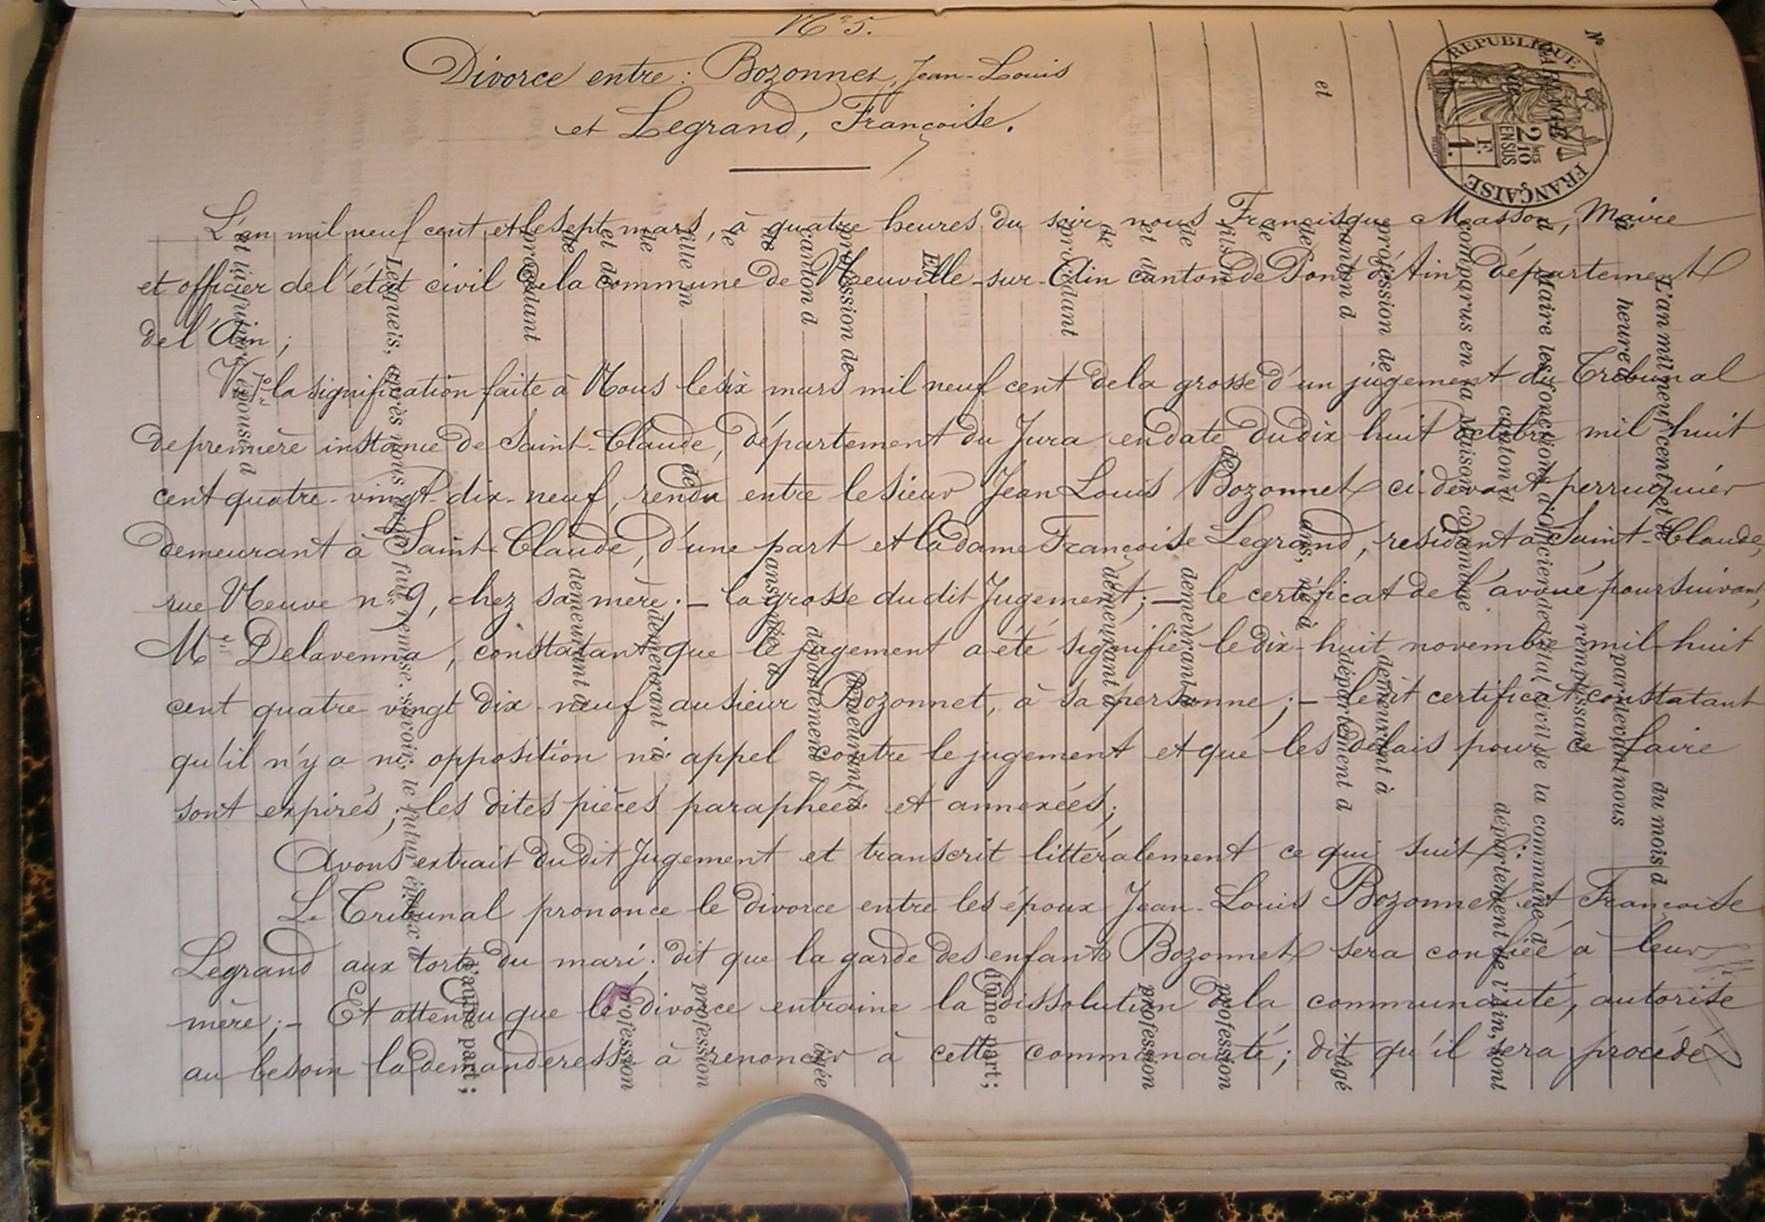 N° 5.
Divorce entre : Bozonnet, Jean-Louis
et Legrand, Françoise.
L'an mil neuf cent et le sept mars, à quatre heures du soir nous Francisque Masson, Maire
et officier de l'état civil de la commune de Neuville-sur-Ain canton de Pont d'Ain Département
de l'Ain ;
Vu 1° la signification faite à Nous le six mars mil neuf cent de la grosse d'un jugement du Tribunal
de première instance de Saint-Claude, Département du Jura en date du dix huit octobre mil huit
cent quatre-vingt-dix-neuf, rendu entre le sieur Jean Louis Bozonnet ci-devant perruquier
demeurant à Saint-Claude, d'une part et la dame Françoise Legrand, résidant à Saint-Claude,
rue Neuve n° 9, chez sa mère ; - la grosse du dit Jugement ; - le certificat de l'avoué poursuivant,
Me Delavenna, constatant que le jugement a été signifié le dix-huit novembre mil-huit
cent quatre-vingt dix-neuf au sieur Bozonnet, à sa personne ; - le dit certificat constatant
qu'il n'y a ni opposition ni appel contre le jugement et que les délais pour ce faire
sont expirés ; les dites pièces paraphées et annexées ;
Avons extrait du dit Jugement et transcrit littéralement ce qui suit :
Le Tribunal prononce le divorce entre les époux Jean-Louis Bozonnet et Françoise
Legrand aux torts du mari ; dit que la garde des enfants Bozonnet sera confiée à leur
mère ; - Et attendu que le divorce entraine la dissolution de la communauté, autorise
au besoin la demanderesse à renoncer à cette communauté ; dit qu'il sera procédé
RÉPUBLIQUE FRANÇAISE
2/10 EN SUS
1 F.
N°
et
L'an mil neuf cent et le du mois d
heure d par devant nous
remplissant
Maire les fonctions d'officier de l'état civil de la commune de
canton d département de l'Ain, sont
comparus en la Maison commune
profession de demeurant à
canton d département d âgé
de ans, né à
fils de profession
et de demeurant à
de demeurant à profession
procédant
d'une part ;
Et
profession de demeurant à
canton d département d âgée
de ans, née à
fille de profession
de demeurant à
et de profession
de demeurant à
procédant
d'autre part ;
Lesquels, après nous avoir fait remise, savoir : le futur époux d
et la future épouse d